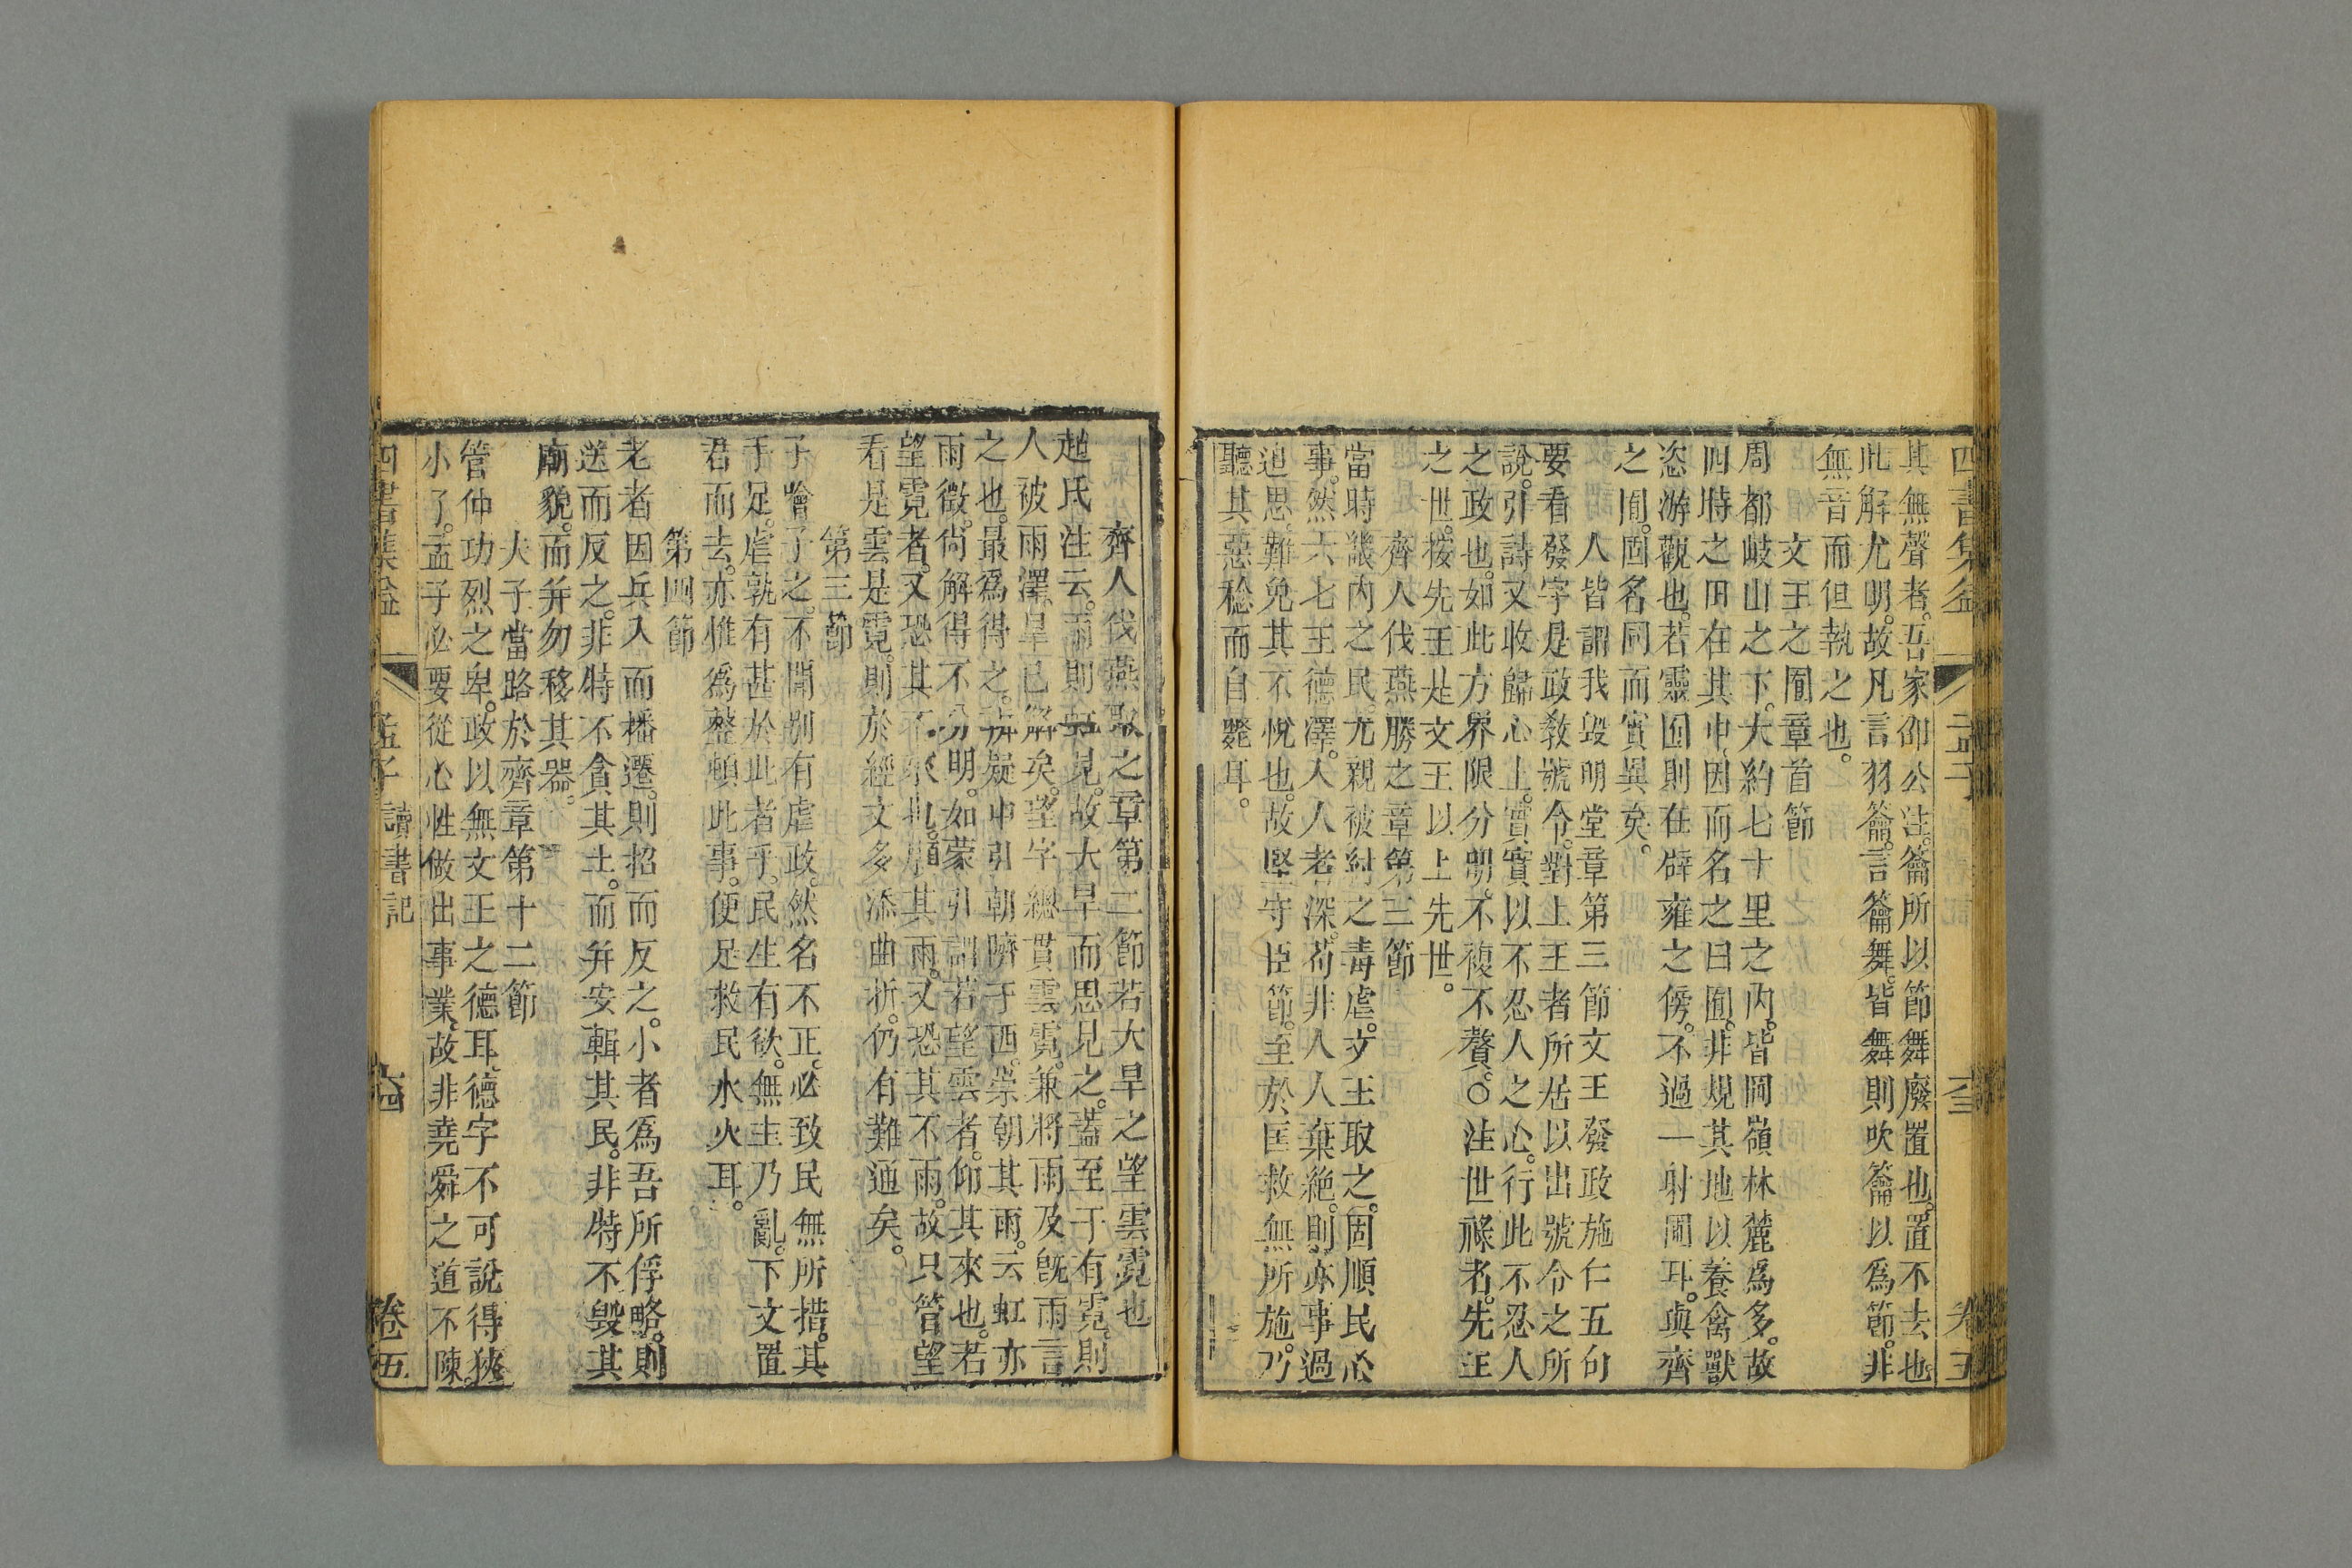 四書集益 孟子 六三 卷五
其無聲者。吾家邵公注。籥所以節舞廢置也。置不去也
此解尤明。故凡言羽籥。言籥舞。皆舞則吹籥以爲節。非
無音而但執之也。
文王之囿章首節
周都岐山之下。大約七十里之內。皆岡嶺林麓爲多。故
四時之田在其中。因而名之曰囿。非規其地以養禽獸
恣游觀也。若靈囿則在辟雍之傍。不過一射圃耳。與齊
之囿。囿名同而實異矣。
人皆謂我毀明堂章第三節文王發政施仁五句
要看發字是政教號令。對上王者所居以出號令之所
說。引詩又收歸心上。實實以不忍人之心。行此不忍人
之政也。如此方界限分明。不複不贅。○注世祿者。先王
之世。按先王是文王以上先世。
齊人伐燕勝之章第三節
當時畿內之民。尤親被紂之毒虐。文王取之。固順民心
事。然六七王德澤。入人者深。苟非人人棄絕。則亦事過
追思。難免其不悅也。故堅守臣節。至於匡救無所施。乃
聽其惡稔而自斃耳。
齊人伐燕取之章第二節若大旱之望雲霓也
趙氏注云。雨則虹見。故大旱而思見之。蓋至于有霓。則
人被雨澤。旱已解矣。望字總貫雲霓。兼將雨及旣雨言
之也。最爲得之。疑中引朝隮于西。崇朝其雨。云虹亦
雨徵。尙解得不分明。如蒙引謂若望雲者。仰其來也。若
望霓者。又恐其不其雨。又恐其不雨。故只管望
看是雲是霓。則於經文多添曲折。仍有難通矣。
第三節
子噲子之。不聞別有虐政。然名不正。必致民無所措。其
手足。虐孰有甚於此者乎。民生有欲。無主乃亂。下文置
君而去。亦惟爲整頓此事。便足救民水火耳。
第四節
老者因兵入而播遷。則招而反之。小者爲吾所俘略。則
送而反之。非特不貪其土。而幷安輯其民。非特不毀其
廟貌。而幷勿移其器。
夫子當路於齊章第十二節
管仲功烈之卑。政以無文王之德耳。德字不可說得狹
小了。孟子必要從心性做出事業。故非堯舜之道不陳
四書集益 孟子 讀書記 六四 卷五